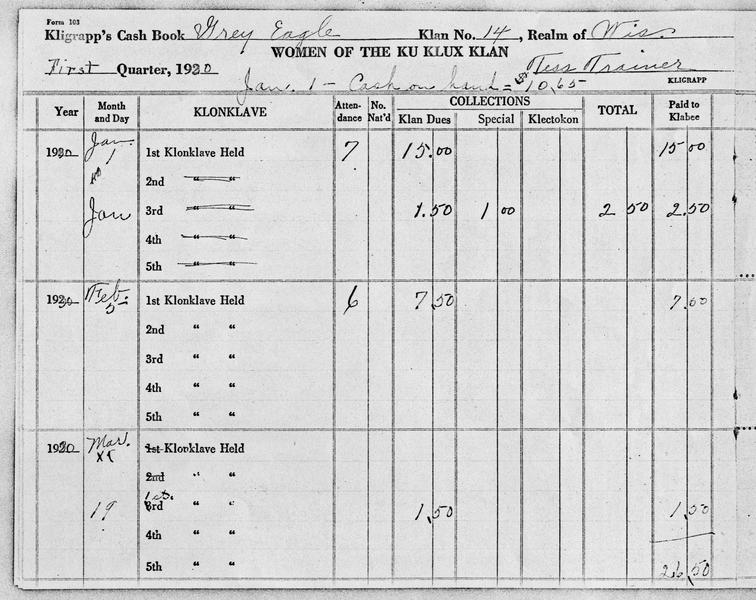 Form 103
Kligrapp's Cash Book Grey Eagle Klan No. 14, Realm of Wis.
WOMEN OF THE KU KLUX KLAN
First Quarter, 1930 Tess Trainer
KLIGRAPP
Jan. 1 - Cash on hand = $10.65
Year Month and Day KLONKLAVE Attendance No. Nat'd COLLECTIONS Klan Dues Special Klectokon TOTAL Paid to Klabee
1930 Jan. 1 1st Klonklave Held 7 15.00 15 00
2nd " "
Jan 3rd " " 1.50 1 00 2 50 2.50
4th " "
5th " "
1930 Feb. 5 1st Klonklave Held 6 7 50 7.00
2nd " "
3rd " "
4th " "
5th " "
1930 Mar. 1st Klonklave Held
2nd " "
19 1st. 3rd " " 1.50 1.50
4th " "
5th " " 26.50